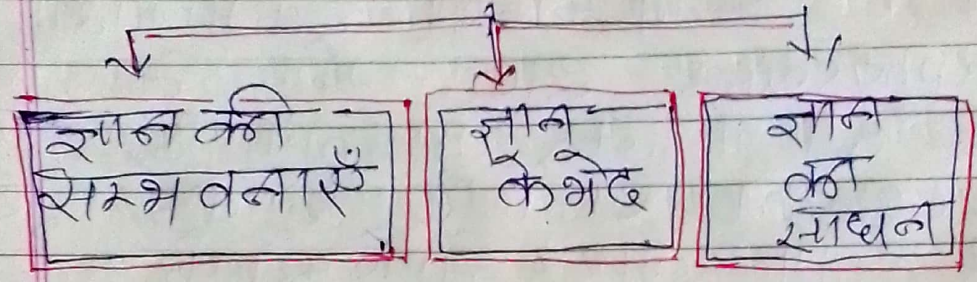 ज्ञान की
सम्भवनाएँ
ज्ञान
के भेद
ज्ञान
का
साधन